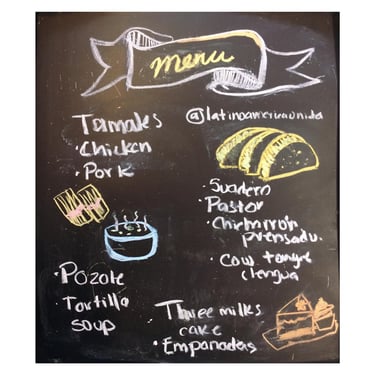 menu
Tamales
• Chicken
• Pork
• Pozole
• Tortilla
soup
@latinoamericanida
• Suadero
• Pastor
• Chicharrón
prensado.
• Cow tongue
Lengua
Three milks
cake
• Empanadas